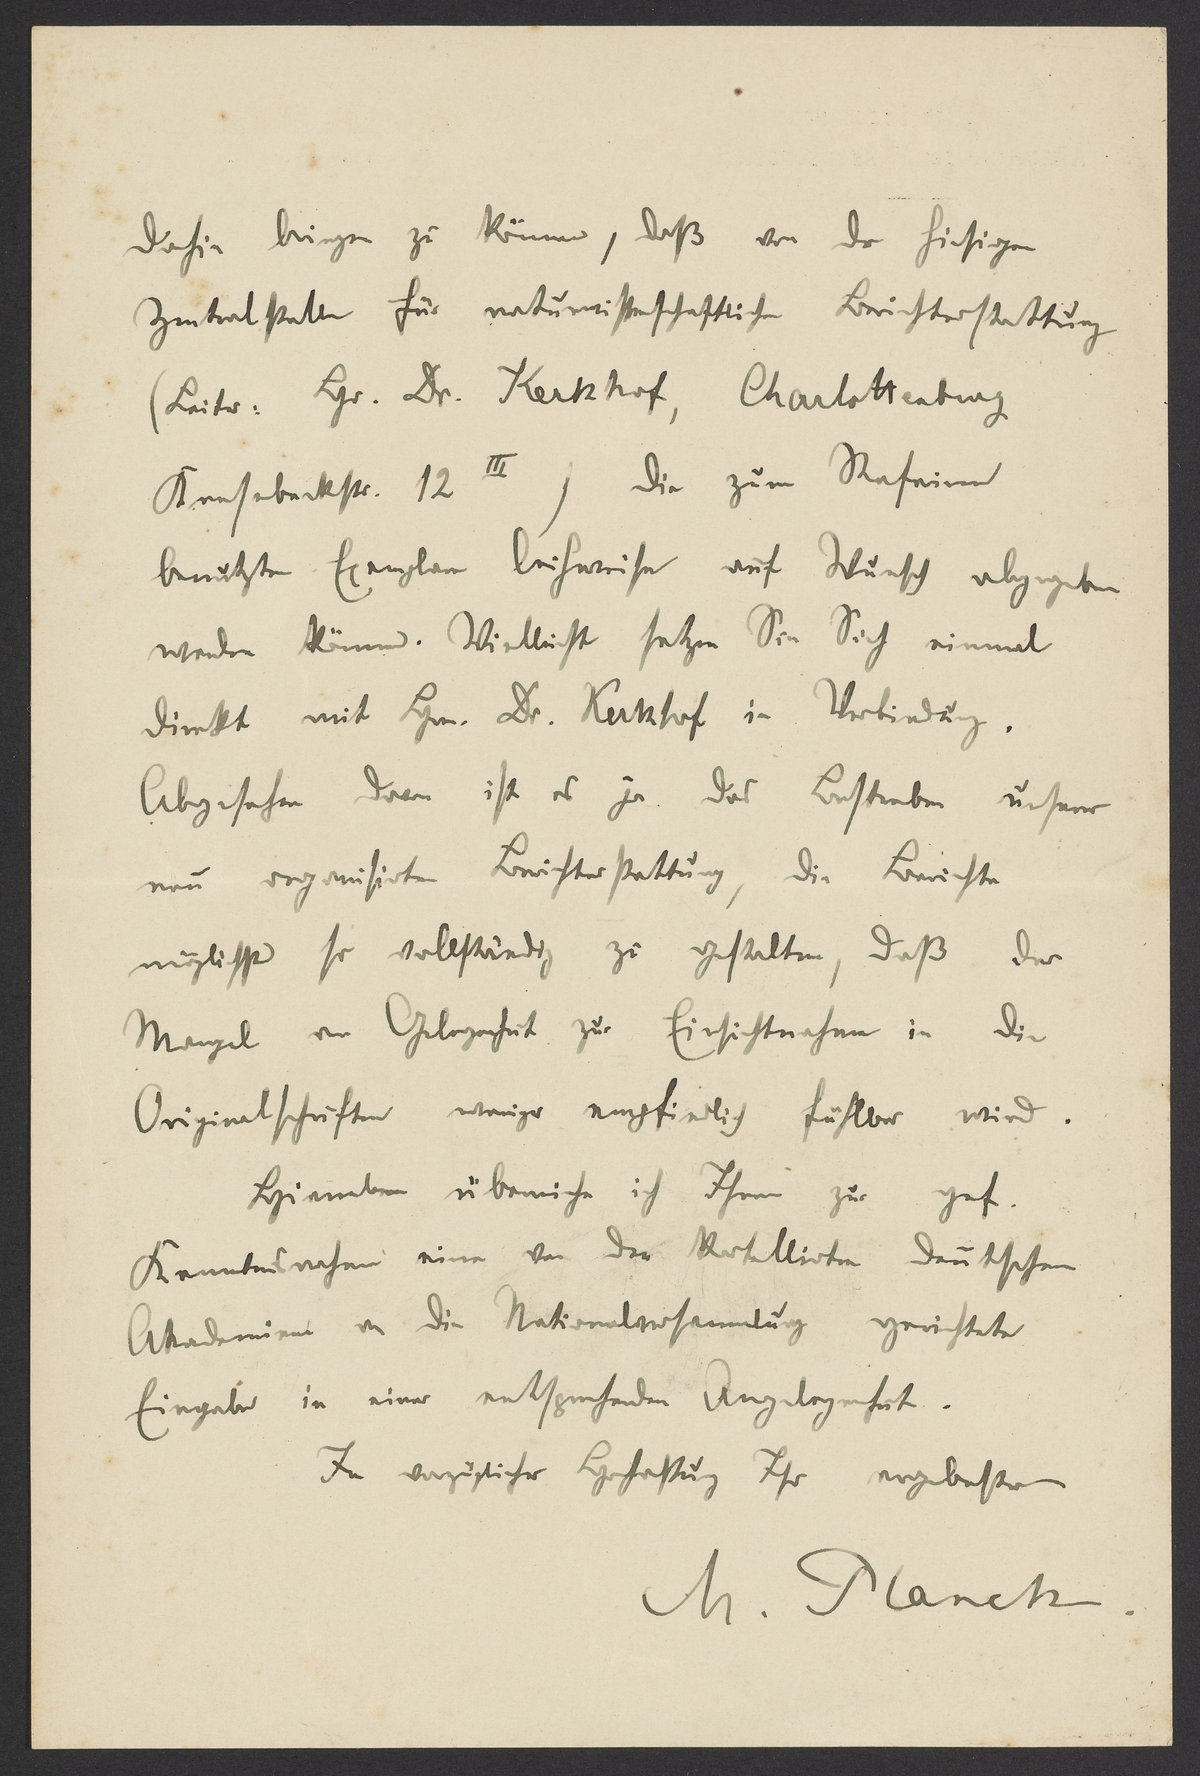 dahin bringen zu können, daß von der hiesigen
Zentralstelle für naturwissenschaftliche Berichterstattung
(Leiter: Hr. Dr. Kerkhof, Charlottenburg
Knesebeckstr. 12 III) die zum Referieren
benutzten Exemplare leihweise auf Wunsch abgegeben
werden können. Vielleicht setzen Sie Sich einmal
direkt mit Hrn. Dr. Kerkhof in Verbindung.
Abgesehen davon ist es ja das Bestreben unserer
neu organisierten Berichterstattung, die Berichte
möglichst so vollständig zu gestalten, daß der
Mangel an Gelegenheit zur Einsichtnahme in die
Originalschriften weniger empfindlich fühlbar wird.
Hierneben überreiche ich Ihnen zur gef.
Kenntnisnahme eine von den kartellierten deutschen
Akademien an die Nationalversammlung gerichtete
Eingabe in einer entsprechenden Angelegenheit.
In vorzüglicher Hochachtung Ihr ergebenster
M. Planck.